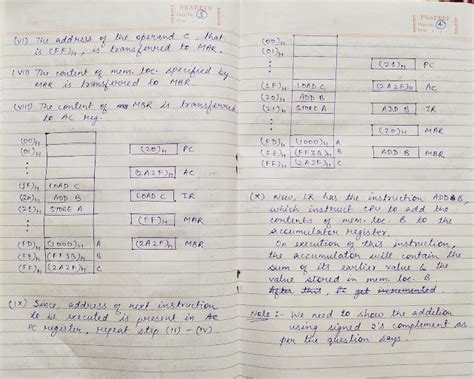 PRABEEN
Page No. 3
(VI) The address of the operand C, that
is (FF)H, is transferred to MAR.
(VII) The content of mem. loc. specified by
MAR is transferred to MBR.
(VIII) The content of MBR is transferred
to AC reg.
(00)H
(01)H
(20)H PC
(2A2F)H AC
(1F)H LOAD C
(20)H ADD B LOAD C IR
(21)H STORE A
(FF)H MAR
(FD)H (1000)H A (2A2F)H MBR
(FE)H (FF38)H B
(FF)H (2A2F)H C
(IX) Since, address of next instruction
to be executed is present in AC
PC register, repeat step (II) - (IV).
Page No. 4
(00)H
(01)H
(21)H PC
(1F)H LOAD C (2A2F)H AC
(20)H ADD B
(21)H STORE A ADD B IR
(20)H MAR
(FD)H (1000)H A
(FE)H (FF38)H B ADD B MBR
(FF)H (2A2F)H C
(X) Now, IR has the instruction ADD B,
which instruct CPU to add the
contents of mem. loc. B to the
accumulator register.
On execution of this instruction,
the accumulator will contain the
sum of its earlier value & the
value stored in mem. loc. B
After this, get incremented.
Note :- We need to show the addition
using signed 2's complement as
per the question says.